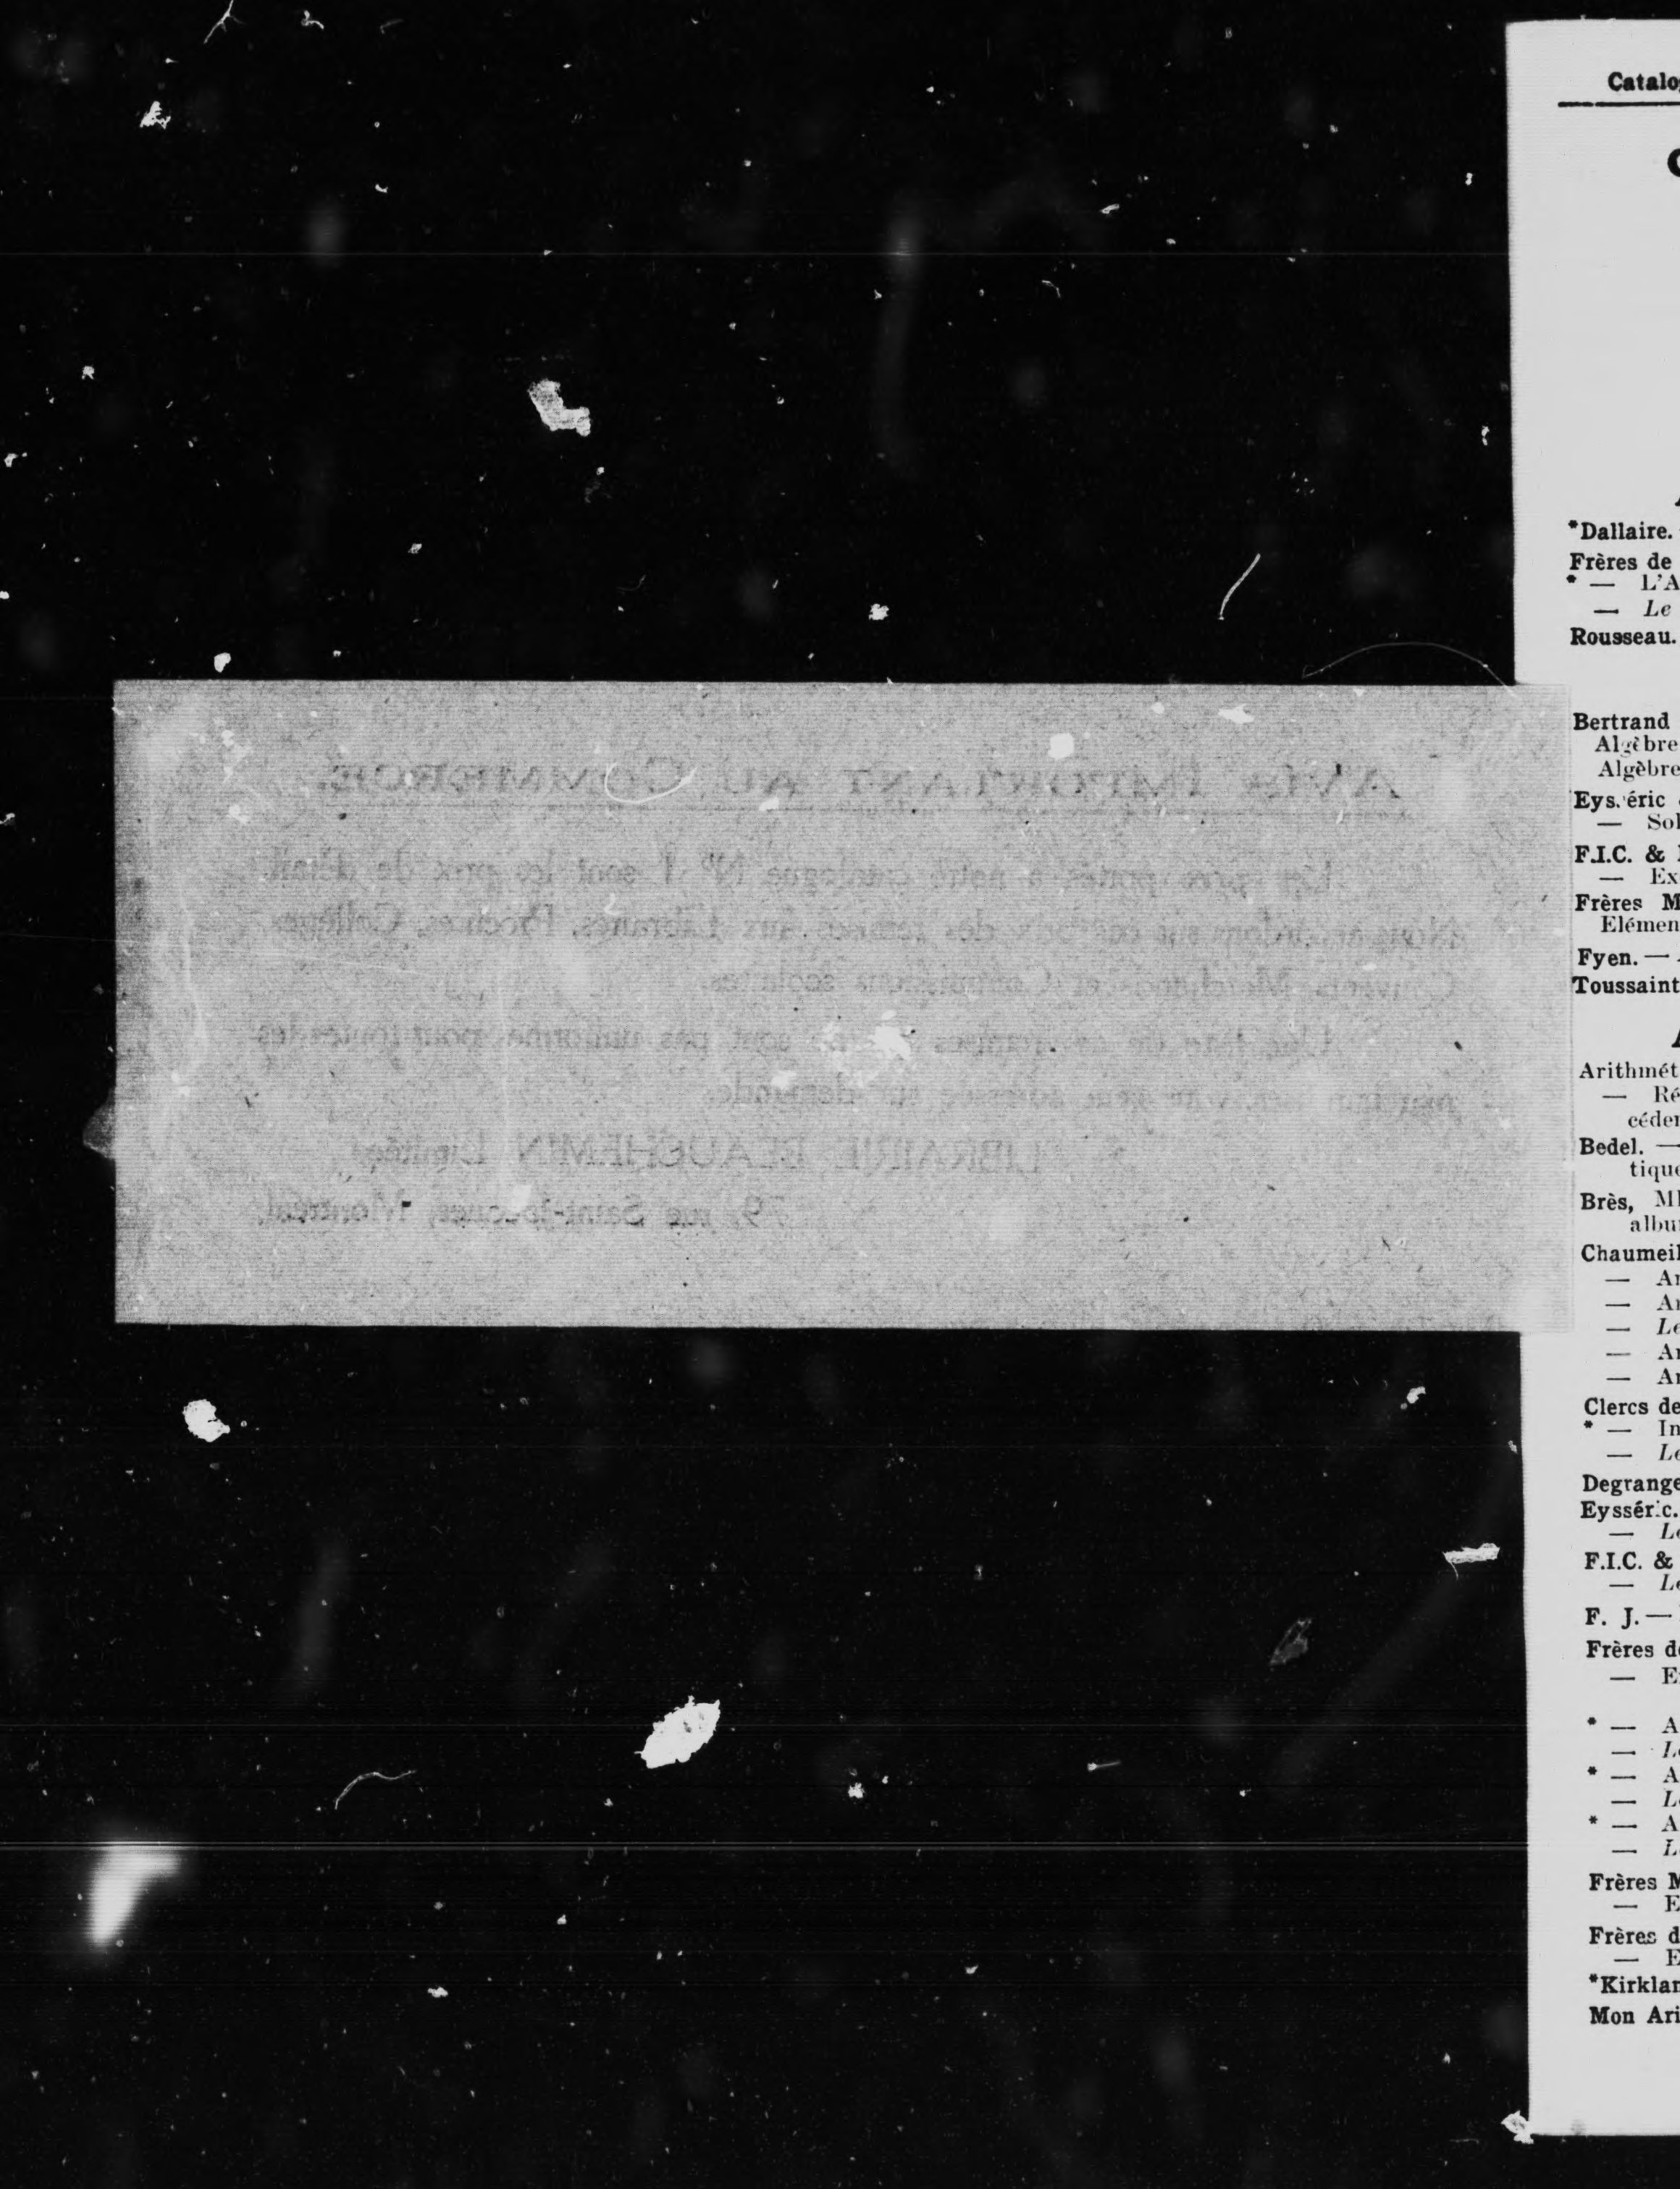 AVIS IMPORTANT AU COMMERCE.
Les prix portés à notre catalogue Nº 1 sont les prix de détail.
Nous accordons sur ces prix des remises aux Libraires, Procures, Collèges,
Couvents, Marchands et Commissions scolaires.
pas uniforme pour toutes les
sur demande.
LIBRAIRIE BEAUCHEMIN Limitée,
79, rue Saint-Jacques, Montréal.
Catalo
*Dallaire.
Frères de
* — L'A
— Le
Rousseau.
Bertrand
Algèbre
Algèbre
Eys.éric
— Sol
F.I.C. &
— Ex
Frères M
Elémen
Fyen. —
Toussaint
Arithmét
— Ré
céden
Bedel. —
tique
Brès, Ml
albu
Chaumeil
— Ar
— Ar
— Le
— Ar
— Ar
Clercs de
* — In
— Le
Degrange
Eysséric.
— Le
F.I.C. &
— Le
F. J. —
Frères de
— E
* — A
— Le
* — A
— Le
* — A
— Le
Frères M
— E
Frères d
— E
*Kirklan
Mon Ari